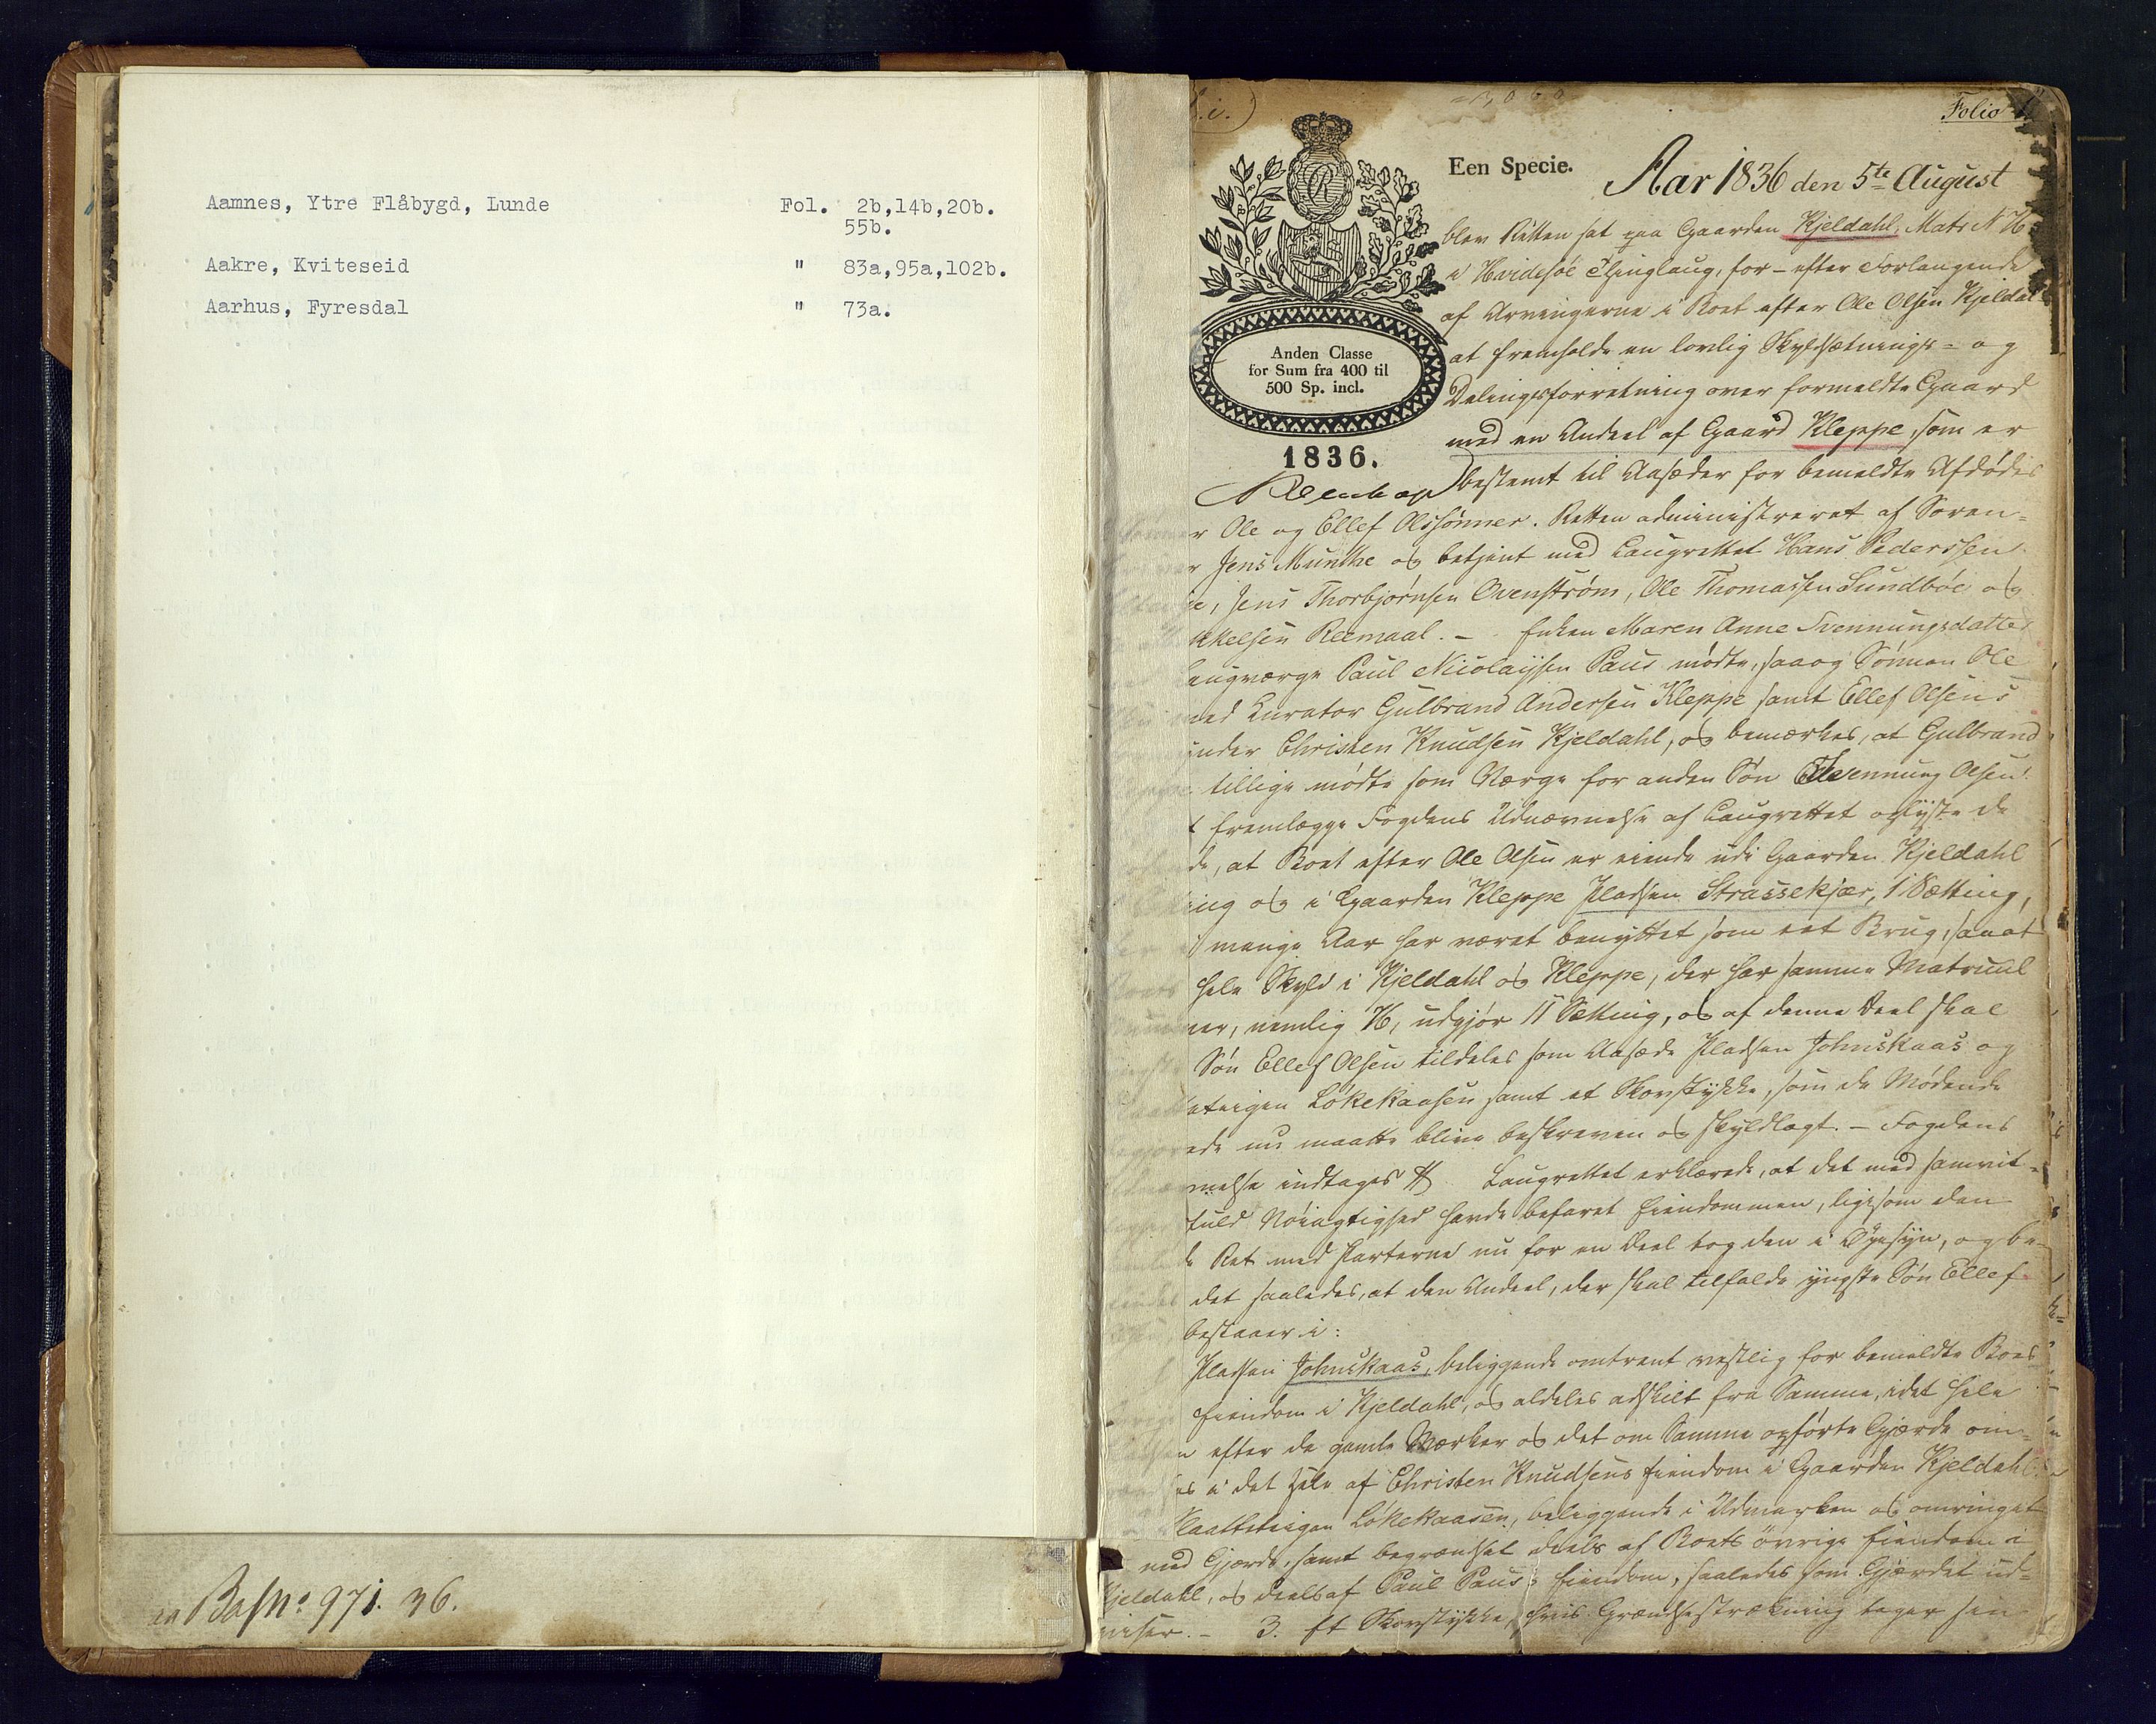 Aamnes, Ytre Flåbygd, Lunde Fol. 2b,14b,20b.
55b.
Aakre, Kviteseid " 83a,95a,102b.
Aarhus, Fyresdal " 73a.
971. 36.
Folio
Een Specie.
Anden Classe
for Sum fra 400 til
500 Sp. incl.
1836.
Aar 1836 den 5te August
blev Retten sat paa Gaarden Kjeldahl, Matr N 76
i Hvidesøe Thinglaug, for efter Forlangende
af Arvingerne i Boet efter Ole Olsen Kjeldahl
at fremholde en lovlig Skyldsætnings- og
Delingsforretning over formeldte Gaard
med en Andeel af Gaard Kleppe, som er
bestemt til Aasæder for bemeldte Afdødes
Ole og Ellef Olssønner. Retten administreret af Soren-
Jens Munthe og betjent med Laugrettet Hans Pederssen
Jens Thorbjørnsen Ovenstrøm, Ole Thomassen Sundbøe og
Reemaal. – Enken Maren Anne Svennungsdatter
Laugværge Paul Nicolaysen Paus mødte, saaog Sønnen Ole
med Curator Gulbrand Andersen Kleppe samt Ellef Olsens
Christen Knudsen Kjeldahl, og bemærkes, at Gulbrand
tillige mødte som Værge for anden Søn Svennung Olsen.
fremlægge Fogdens Udnævnelse af Laugrettet oplyste de
at Boet efter Ole Olsen er eiende udi Gaarden Kjeldahl
og i Gaarden Kleppe Pladsen Strassekjær, 1 Sætting,
mange Aar har været benyttet som eet Brug, saaat
hele Skyld i Kjeldahl og Kleppe, der har samme Matrcul
nemlig 76, udgjør 11 Sætting, og af denne Deel skal
Søn Ellef Olsen tildeles som Aasæde Pladsen Johnskaas og
Løkekaasen samt et Skovstykke, som de Mødende
nu maatte blive beskreven og skyldlagt. – Fogdens
indtages Laugrettet erklærede, at det med samvit-
fuld Nøiagtighed havde befaret Eiendommen, ligesom den
Ret med Parterne nu for en Deel tog den i Øyesyn, og be-
det saaledes, at den Andeel, der skal tilfalde yngste Søn Ellef
bestaaer i:
Pladsen Johnskaas, beliggende omtrent vestlig for bemeldte Boes
Eiendom i Kjeldahl, og aldeles adskilt fra Samme, idet hele
efter de gamle Mærker og det om Samme opførte Gjærde om-
i det Hele af Christen Knudsens Eiendom i Gaarden Kjeldahl.
Løkekaasen, beliggende i Udmarken og omringet
med Gjærde, samt begrændset deels af Boets øvrige Eiendom i
Kjeldahl, og deels af Paul Paus's Eiendom, saaledes som Gjærdet ud-
viser. – 3. Et Skovstykke, hvis Grændsestrækning tager sin